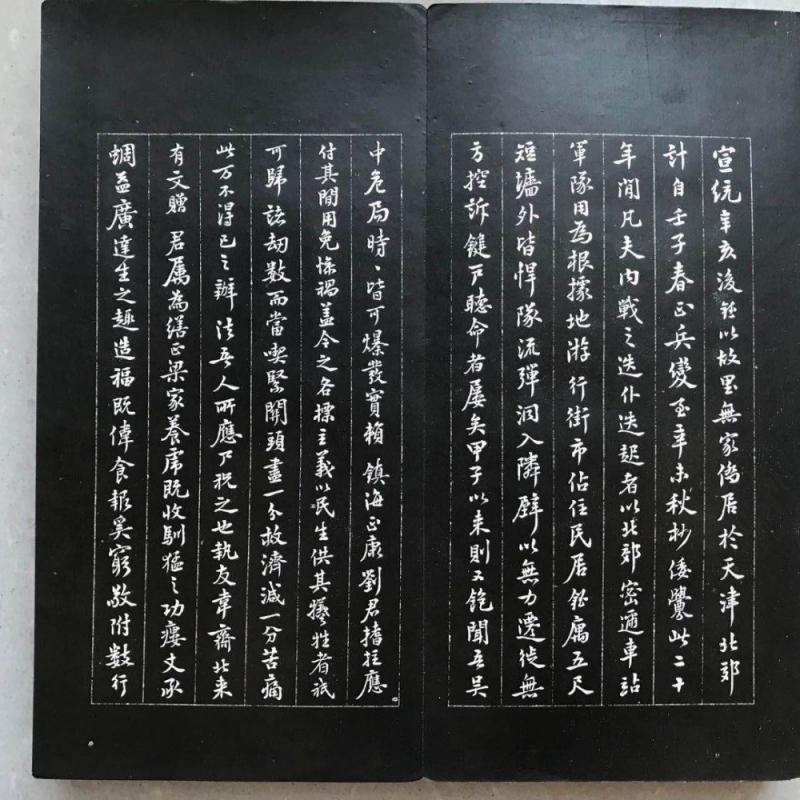 宣統辛亥後鉦以故里無家僑居於天津北郊
計自壬子春正兵變至辛未秋杪倭釁此二十
年間凡夫內戰之迭仆迭起者以北郊密邇車站
軍隊用為根據地游行街市佔住民居鉦寓五尺
短墻外皆悍隊流彈洞入隣壁以無力遷徙無
方控訴鍵戶聽命者屢矣甲子以來則又飽聞吾吳
中危局時、皆可爆發實賴鎮海正康劉君搘拄應
付其間用免慘禍蓋今之名標主義以民生供其犧牲者祇
可歸諉劫數而當喫緊關頭盡一分救濟減一分苦痛
此万不得已之辦法吾人所應尸祝之也執友韋齋北來
有文贈君屬為繕正梁家養虎既收馴猛之功痿丈承
蜩益廣達生之趣造福既偉食報奚窮敬附數行